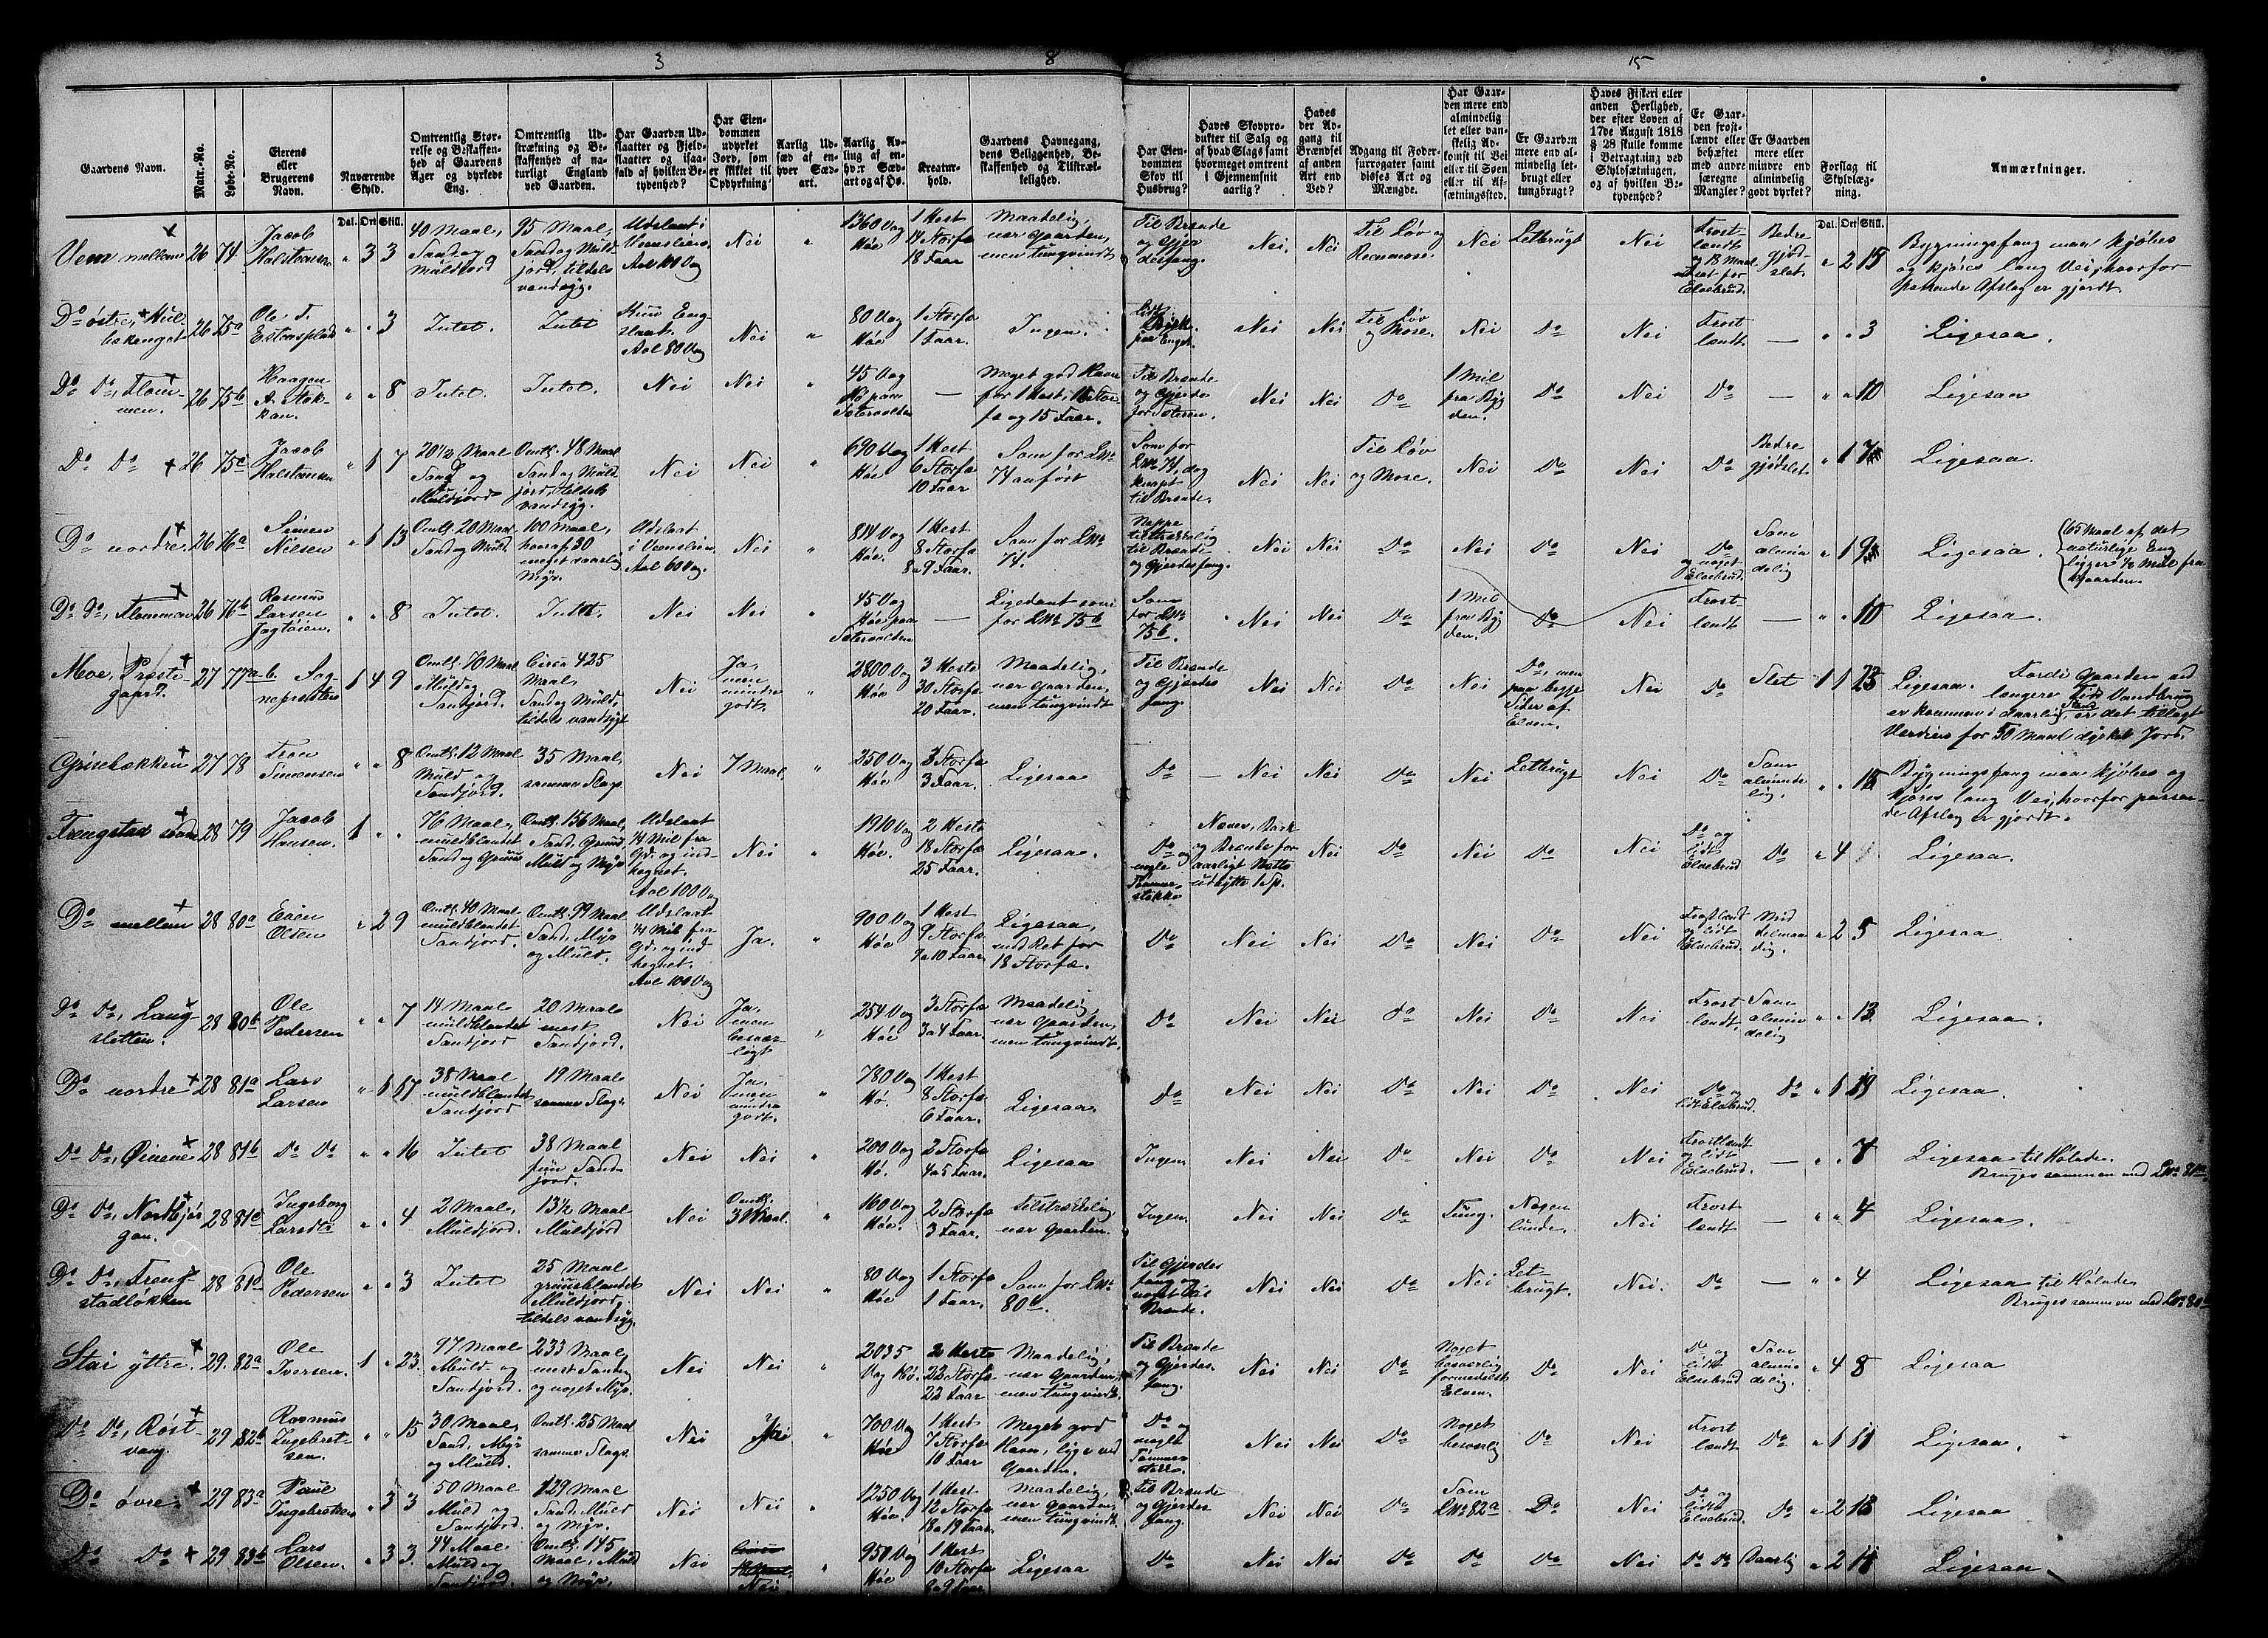 3 8 15
Gaardens Navn.
Matr.-No.
Løbe-No.
Eierens eller Brugerens Navn.
Nuværende Skyld.
Omtrentlig Størrelse og Beskaffenhed af Gaardens Ager og dyrkede Eng.
Omtrentlig Udstrækning og Beskaffenhed af naturligt England ved Gaarden.
Har Gaarden Udslaatter og Fjeldslaatter og isaafald af hvilken Betydenhed?
Har Eiendommen udyrket Jord, som er skikket til Opdyrkning?
Aarlig Udsæd af enhver Sædart.
Aarlig Avling af enhver Sædart og af Hø.
Kreaturhold.
Gaardens Havnegang, dens Beliggenhed, Beskaffenhed og Tilstrækkelighed.
Har Eiendommen Skov til Husbrug?
Haves Skovprodukter til Salg og af hvad Slags samt hvormeget omtrent i Gjennemsnit aarlig?
Haves der Adgang til Brændsel af anden Art end Ved?
Adgang til Fodersurrogater samt disses Art og Mængde.
Har Gaarden mere end almindelig let eller vanskelig Adkomst til Vei eller til Søen eller til Afsætningssted.
Er Gaarden mere end almindelig letbrugt eller tungbrugt?
Haves Fiskeri eller anden Herlighed, der efter Loven af 17de August 1818 § 28 skulle komme i Betragtning ved Skyldsætningen, og af hvilken Betydenhed?
Er Gaarden frostlændt eller behæftet med andre særegne Mangler?
Er Gaarden mere eller mindre end almindelig godt dyrket?
Forslag til Skyldlægning.
Anmærkninger.
Dal. Ort Skill. Dal. Ort Skill.
Vem mellem 26 74 Jacob Halstensen " 3 3 40 Maal, Sand og Muldjord 95 Maal, Sand og Muldjord, tildels vandsyg. Udslaat i Vemslien. Avl 100 Vog Nei " 1360 Vog Høe 1 Hest 14 Storfæ 18 Faar Maadelig, nær Gaarden, men tungvindt Til Brænde og Gjerdesfang. Nei, Nei Til Løv og Reenmose. Nei Letbrugt Nei Frostlændt og 13 Maal udsat for Elvebrud. Bedre gjødslet. " 2 15 Bygningsfang maa kjøbes og kjøres lang Vei, hvorfor passende Afslag er gjordt.
Do østre, Kulbækenget 26 75a Ole T. Estensplad " " 3 Intet. Intet Kun Engslaat. Avl 80 Vog Nei " 80 Vog Høe 1 Storfæ 1 Faar. Ingen. Nei Nei Til Løv og Mose. Nei Do Nei Frostlændt — " " 3 Ligesaa.
Do Do, Flommen. 26 75b Haagen A. Stokkan. " " 8 Intet. Intet. Nei Nei " 45 Vog Hø paa Sætervolden — Meget god Havn for 1 Hest, 18 Storfæ og 15 Faar. Til Brænde og Gjerde for Sæteren. Nei Nei Do 1 Mil fra Bygden. Do Nei Do — " " 10 Ligesaa
Do Do 26 75c Jacob Halstensen " 1 7 20 1/2 Maal Sand og Muldjord Omtl. 48 Maal Sand og Muldjord, tildels vandsyg. Nei Nei " 690 Vog Høe 1 Hest 6 Storfæ 10 Faar Som for LNr 74 anført Som for LNr 74, dog knapt til Brænde. Nei Nei Til Løv og Mose. Nei Do Nei Do Bedre gjødslet " 1 7 Ligesaa.
Do nordre. 26 76a Simen Nilsen " 1 13 Omtl. 20 Maal Sand og Muld 100 Maal, hvoraf 30 meget vaarlig Myr. Udslaat i Vemslien Avl 60 Vog. Nei " 814 Vog Høe. 1 Hest 8 Storfæ 8 a 9 Faar. Som for LNr 74. Neppe tilstrækkelig til Brænde og Gjerdesfang. Nei Nei Do Nei Do Nei Do og noget Elvebrud. Som almindelig " 1 9 Ligesaa. (65 Maal af det naturlige Eng ligger 1/2 Mil fra Gaarden.
Do Do, Flommen 26 76b Rasmus Larsen Jagtøien. " " 8 Intet. Intet. Nei Nei " 45 Vog Høe paa Sætervolden — Ligedant som for LNr 75b Som for LNr 75b. Nei Nei Do 1 Mil fra Bygden. Do Nei Frostlændt — " " 10 Ligesaa.
Moe, Præstegaard. 27 77a-b. Sognepræsten 1 4 9 Omtl. 70 Maal Muld og Sandjord. Circa 425 Maal, Sand og Muld, tildels vandsygt Nei Ja, men mindre godt. " 2800 Vog Høe 3 Heste 30 Storfæ 20 Faar. Maadelig, nær Gaarden, men tungvindt Til Brænde og Gjerdesfang. Nei Nei Do Nei Do, men paa begge Sider af Elven. Nei Do Slet 1 1 23 Ligesaa. Fordi Gaarden ved længere Tids Vandbrug er kommen i daarlig Stand, er det tillagt Værdien for 30 Maal dyrket Jord.
Grisebækken 27 78 Tron Simensen " " 8 Omtl. 12 Maal Muld og Sandjord. 35 Maal, samme Slags. Nei 7 Maal. " 250 Vog Høe 3 Storfæ 3 Faar. Ligesaa Do — Nei Nei Do Nei Letbrugt Nei Do Som almindelig. " " 15 Bygningsfang maa kjøbes og kjøres lang Vei, hvorfor passende Afslag er gjordt.
Frengstad søndre 28 79 Jacob Hansen. 1 " " 76 Maal, muldblandet Sand og Gruus Omtl. 156 Maal, Sand, Gruus Muld og Myr Udslaat 1/4 Mil fra Gd. og indhegnet. Avl 100 Vog Nei " 1910 Vog Høe. 2 Heste 18 Storfæ 25 Faar. Ligesaa. Do og nogle Tømmerstokke Næver, Bark og Brænde for aarligt Netto udbytte 1 Sp. Nei Do Nei Do Nei Do og lidt Elvebrud Do " 4 Ligesaa.
Do mellem 28 80a Even Olsen " 2 9 Omtl. 40 Maal muldblandet Sandjord. Omtl. 99 Maal Sand, Myr og Muld. Udslaat 1/4 Mil fra Gd. og indhegnet. Avl 100 Vog Ja. " 900 Vog Høe 1 Hest 9 Storfæ 9 a 10 Faar Ligesaa, med Ret for 18 Storfæ. Do Nei Nei Do Nei Do Nei Frostlændt og lidt Elvebrud. Middelmaadig. " 2 5 Ligesaa
Do Do, Langsletten. 28 80b Ole Pedersen " " 7 14 Maal muldblandet Sandjord 20 Maal mest Sandjord. Nei Ja, men besværligt " 254 Vog Høe 3 Storfæ 3 a 4 Faar. Maadelig, nær Gaarden, men tungvindt. Do Nei Nei Do Nei Do Nei Frostlændt. Som almindelig " " 13 Ligesaa.
Do nordre 28 81a Lars Larsen " 1 17 38 Maal muldblandet Sandjord 19 Maal samme Slags. Nei Ja, men mindre godt. " 780 Vog Hø. 1 Hest 8 Storfæ 6 Faar. Ligesaa. Do Nei Nei Do Nei Do Nei Do og lidt Elvebrud. Do " 1 19 Ligesaa.
Do Do, Øiene 28 81b Do Do " " 16 Intet 38 Maal fiin Sandjord. Nei Nei " 200 Vog Hø. 2 Storfæ 4 a 5 Faar. Ligesaa Ingen Nei Nei Do Nei Do Nei Frostlændt og lidt Elvebrud. — " " 7 Ligesaa til Hølade. Bruges sammen med LNr 81a.
Do Do, Nordbjørgan. 28 81c Ingeborg Larsdtr " " 4 2 Maal, Muldjord. 13 1/2 Maal Muldjord Nei Omtl. 3 Maal. " 160 Vog Høe. 2 Storfæ 3 Faar. Tilstrækkelig nær Gaarden. Ingen Nei Nei Do Tung. Nogenlunde. Nei Frostlændt — " " 4 Ligesaa.
Do Do, Frengstadløkken 28 81d Ole Pedersen " " 3 Intet 25 Maal gruusblandet Muldjord, tildels vandsyg. Nei Nei " 80 Vog Høe 1 Storfæ 1 Faar. Som for LNr 80b. Til Gjerdesfang og noget til Brænde. Nei Nei Do Nei Letbrugt. Nei. Do — " " 4 Ligesaa til Hølade. Bruges sammen med LNr 80b
Stai yttre. 29. 82a Ole Iversen. 1 " 23. 97 Maal Muld og Sandjord. 233 Maal, mest Sand og noget Myr. Nei Nei " 2035 Vog Hø. 2 Heste 22 Storfæ 22 Faar Maadelig, nær Gaarden, men tungvindt. Til Brænde og Gjerdesfang. Nei Nei Do Noget besværlig formedelst Elven. Do Nei Do og lidt Elvebrud Som almindelig. " 4 8 Ligesaa
Do Do, Røstvang. 29 82b Rasmus Ingebretsen. " " 15 30 Maal, Sand, Myr og Muld. Omtl. 25 Maal samme Slags. Nei Nei " 700 Vog Høe 1 Hest 7 Storfæ 10 Faar Meget god Havn, lige ved Gaarden. Do og noget Tømmer Nei Nei Do Noget besværlig Do Nei Frostlændt Do " 1 11 Ligesaa.
Do øvre 29 83a Paul Ingebretsen " 3 3 50 Maal Muld og Sandjord. 129 Maal Sand, Muld og Myr. Nei Nei " 1250 Vog Høe. 1 Hest 12 Storfæ 18 a 19 Faar. Maadelig, nær Gaarden, men tungvindt. Til Brænde og Gjerdesfang. Nei Nei Do Som LNr 82a Do Nei Do og lidt Elvebrud. Do " 2 18 Ligesaa
Do Do 29 83b Lars Olsen. " 3 3. 44 Maal Muld og Sandjord. Omtl. 145 Maal, Muld og Myr. Nei Nei " 950 Vog Høe 1 Hest 10 Storfæ 8 a 9 Faar Ligesaa Do Nei Nei Do Do Do Nei Do Do Daarlig " 2 11 Ligesaa.